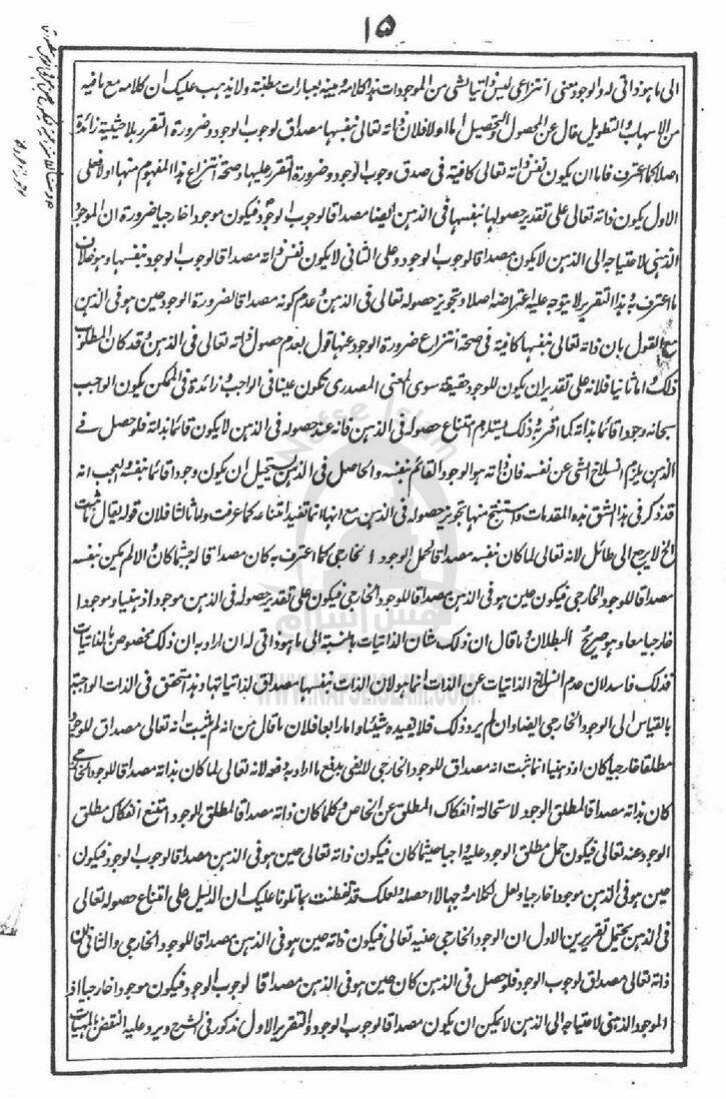 ١٥
الى ما هو ذاتي له والوجود معنى انتزاعي ليس ذاتيا لشي من الموجودات هذا كلامه ومبنيه بعبارات مطنبة ولا يذهب عليك ان كلامه مع ما فيه
من الاسهاب والتطويل خال عن المحصول والتحصيل اما اولا فلان ذاته تعالى نفسها مصداق لوجوب الوجود وضرورة التقرر بلا حيثية زائدة
اصلا كما اعترف فاما ان يكون نفس ذاته تعالى كافية في صدق وجوب الوجود وضرورة التقرر عليها وصحة انتزاع هذا المفهوم منها اولا فعلى
الاول يكون ذاته تعالى على تقدير حصولها بنفسها في الذهن ايضا مصداقا لوجوب الوجود فيكون موجودا خارجيا ضرورة ان الموجود
الذهني لاحتياجه الى الذهن لا يكون مصداقا لوجوب الوجود وعلى الثاني لا يكون نفس ذاته مصداقا لوجوب الوجود بنفسها وهو خلاف
ما اعترف به وبهذا التقرير لا يتوجه عليه اعتراضه اصلا وتجويز حصوله تعالى في الذهن وعدم كونه مصداقا لضرورة الوجود حين هو في الذهن
مع القول بان ذاته تعالى بنفسها كافية في صحة انتزاع ضرورة الوجود عنها قول بعدم حصول ذاته تعالى في الذهن وقد كان المطلوب
ذلك واما ثانيا فلانه على تقدير ان يكون للوجود حقيقة سوى المعنى المصدري تكون عينا في الواجب وزائدة في الممكن يكون الواجب
سبحانه وجودا قائما بذاته كما اقر به وذلك يستلزم امتناع حصوله في الذهن فانه عند حصوله في الذهن لا يكون قائما بذاته فلو حصل في
الذهن يلزم انسلاخ الشي عن نفسه فان ذاته هو الوجود القائم بنفسه والحاصل في الذهن يستحيل ان يكون وجودا قائما بنفسه والعجب انه
قد ذكر في هذا الشق هذه المقدمات واستنتج منها تجويز حصوله في الذهن مع انها انما تفيد امتناعه كما عرفت واما ثالثا فلان قوله يقال ثابت
الخ لا يرجع الى طائل لانه تعالى لما كان نفسه مصداقا لحمل الوجود الخارجي كما اعترف به كان مصداقا له حيثما كان والا لم يكن بنفسه
مصداقا للوجود الخارجي فيكون حين هو في الذهن مصداقا للوجود الخارجي فيكون على تقدير حصوله في الذهن موجودا ذهنيا وموجودا
خارجيا معا وهو صريح البطلان وما قال ان ذلك شان الذاتيات بالنسبة الى ما هو ذاتي له ان اراد به ان ذلك مخصوص بالذاتيات
فذلك فاسد لان عدم انسلاخ الذاتيات عن الذات انما هو لان الذات نفسها مصداق لذاتياتها وهذا متحقق في الذات الواجبة
بالقياس الى الوجود الخارجي ايضا وان لم يرد ذلك فلا يفيده شيئا واما رابعا فلان ما قال من انه لم يثبت انه تعالى مصداق للوجود
مطلقا خارجيا كان او ذهنيا انما ثبت انه مصداق للوجود الخارجي لا يفي بدفع ما اراد به دفعه لانه تعالى لما كان بذاته مصداقا للوجود الخارجي
كان بذاته مصداقا لمطلق الوجود لاستحالة انفكاك المطلق عن الخاص وكلما كان ذاته مصداقا لمطلق الوجود امتنع انفكاك مطلق
الوجود عنه تعالى فيكون حمل مطلق الوجود عليه واجبا حيثما كان فيكون ذاته تعالى حين هو في الذهن مصداقا لوجوب الوجود فيكون
حين هو في الذهن موجودا خارجيا ولعل لكلامه وجها لا احصله ولعلك قد تفطنت بما تلونا عليك ان الدليل على امتناع حصوله تعالى
في الذهن يحتمل تقريرين الاول ان الوجود الخارجي عينه تعالى فيكون ذاته حين هو في الذهن مصداقا للوجود الخارجي والثاني ان
ذاته تعالى مصداق لوجوب الوجود فلو حصل في الذهن كان حين هو في الذهن مصداقا لوجوب الوجود فيكون موجودا خارجيا اذ
الموجود الذهني لاحتياجه الى الذهن لا يمكن ان يكون مصداقا لوجوب الوجود والتقرير الاول مذكور في الشرح ويرد عليه النقض بالمهيات
Nafse Islam
نفس اسلام
WWW.NAFSEISLAM.COM